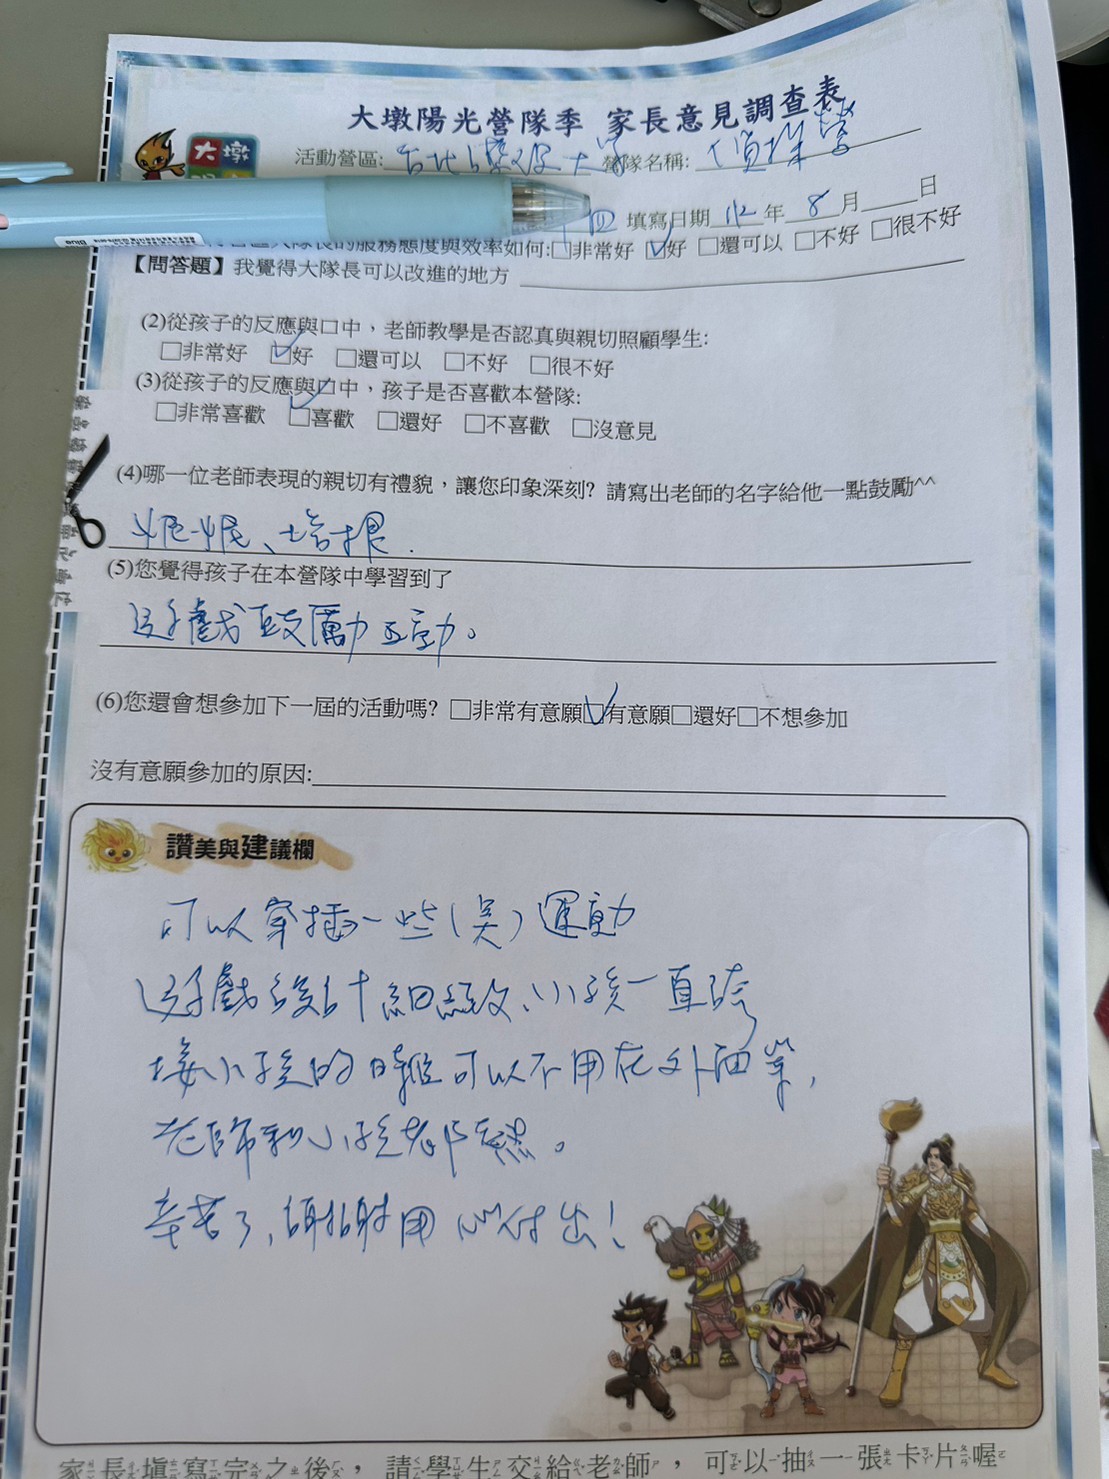 大墩陽光營隊季 家長意見調查表
大墩
活動營區: 台北護理大學 營隊名稱: 偵探營
四 填寫日期 112 年 8 月 日
的服務態度與效率如何:□非常好 ☑好 □還可以 □不好 □很不好
【問答題】我覺得大隊長可以改進的地方
(2)從孩子的反應與口中，老師教學是否認真與親切照顧學生:
□非常好 ☑好 □還可以 □不好 □很不好
(3)從孩子的反應與口中，孩子是否喜歡本營隊:
□非常喜歡 ☑喜歡 □還好 □不喜歡 □沒意見
(4)哪一位老師表現的親切有禮貌，讓您印象深刻? 請寫出老師的名字給他一點鼓勵^^
妮妮、培根.
(5)您覺得孩子在本營隊中學習到了
遊戲鼓勵互動。
(6)您還會想參加下一屆的活動嗎? □非常有意願☑有意願□還好□不想參加
沒有意願參加的原因:
讚美與建議欄
可以穿插一些(美)運動
遊戲設計細緻、小孩一直誇
接小孩的時候可以不用在外面等,
老師和小孩都熱。
辛苦了,謝謝用心付出!
家長填寫完之後，請學生交給老師，可以抽一張卡片喔